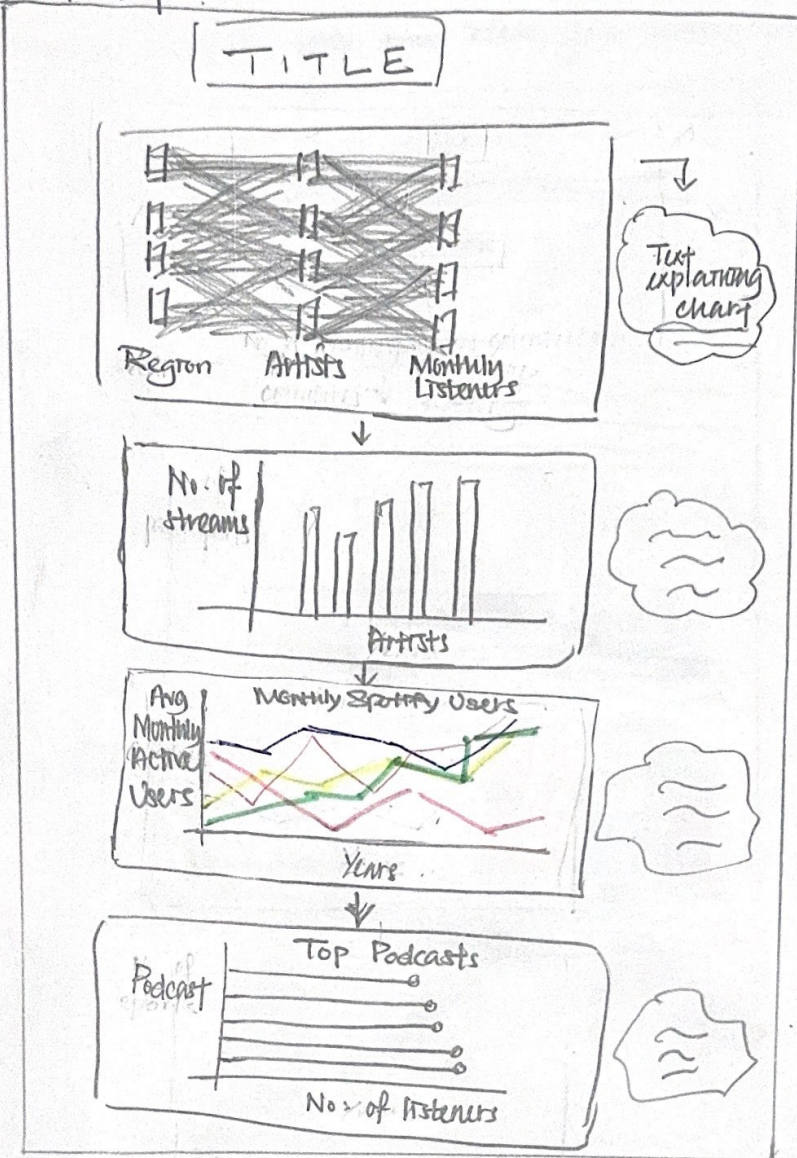 TITLE
Region Artists Monthly
Listeners
Text
explaining
chart
No. of
streams
Artists
Avg
Monthly
Active
Users
Monthly Spotify Users
Years
Top Podcasts
Podcast
No. of listeners